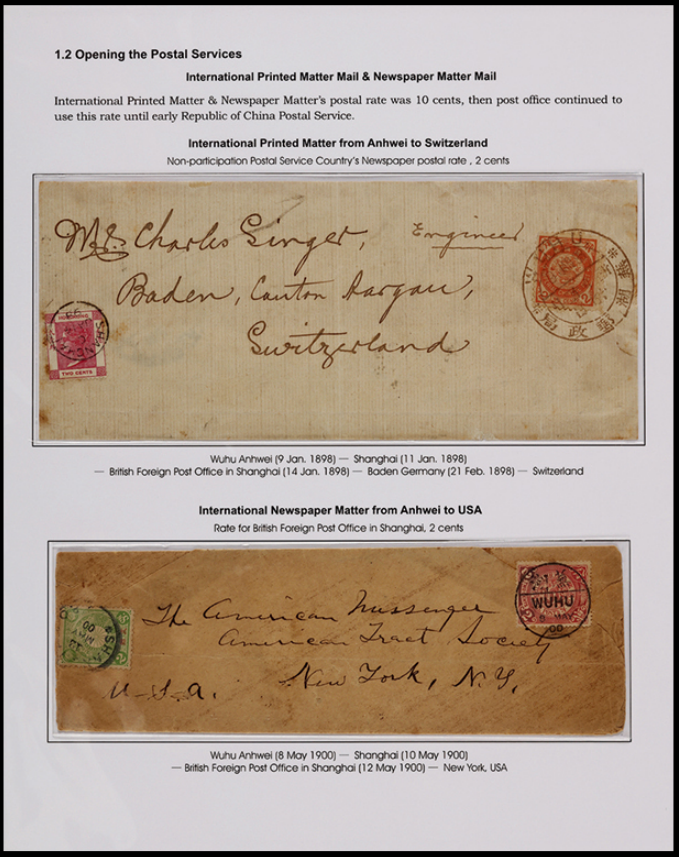 1.2 Opening the Postal Services
International Printed Matter Mail & Newspaper Matter Mail
International Printed Matter & Newspaper Matter's postal rate was 10 cents, then post office continued to
use this rate until early Republic of China Postal Service.
International Printed Matter from Anhwei to Switzerland
Non-participation Postal Service Country's Newspaper postal rate , 2 cents
Mr. Charles Singer, Engineer
Baden, Canton Aargau,
Switzerland
HONG KONG
TWO CENTS
SHANGHAI
98
郵
政
局
Wuhu Anhwei (9 Jan. 1898) — Shanghai (11 Jan. 1898)
— British Foreign Post Office in Shanghai (14 Jan. 1898) — Baden Germany (21 Feb. 1898) — Switzerland
International Newspaper Matter from Anhwei to USA
Rate for British Foreign Post Office in Shanghai, 2 cents
The American Messenger
American Tract Society
New York, N.Y.
U.S.A.
WUHU
8 MAY
00
MAY
00
Wuhu Anhwei (8 May 1900) — Shanghai (10 May 1900)
— British Foreign Post Office in Shanghai (12 May 1900) — New York, USA